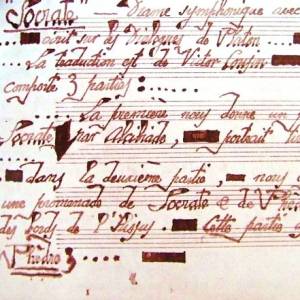 Socrate — Drame symphonique avec
écrit sur des Dialogues de Platon
La traduction est de Victor Cousin
comporte 3 parties :
La première nous donne un
Socrate par Alcibiade, portrait
dans la deuxième partie, nous
une promenade de Socrate & de Phèdre
des bords de l'Ilissus. Cette partie
Phèdre